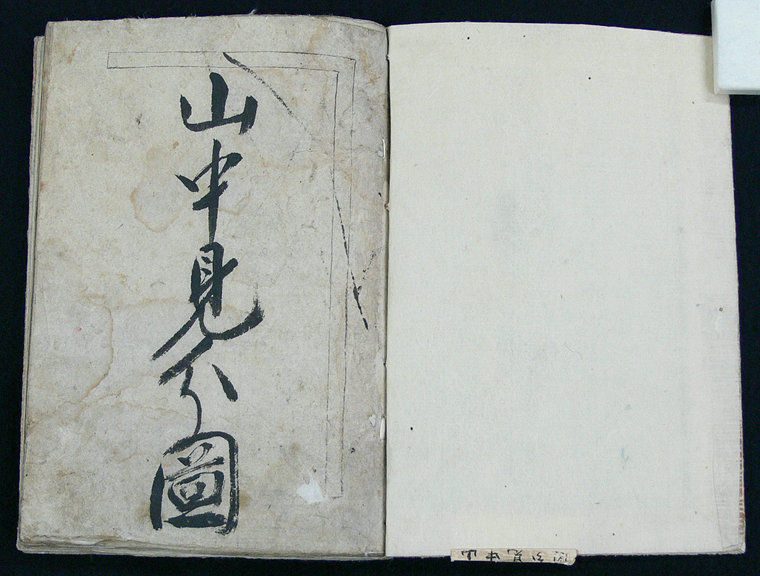 山中見分圖
山中見分圖